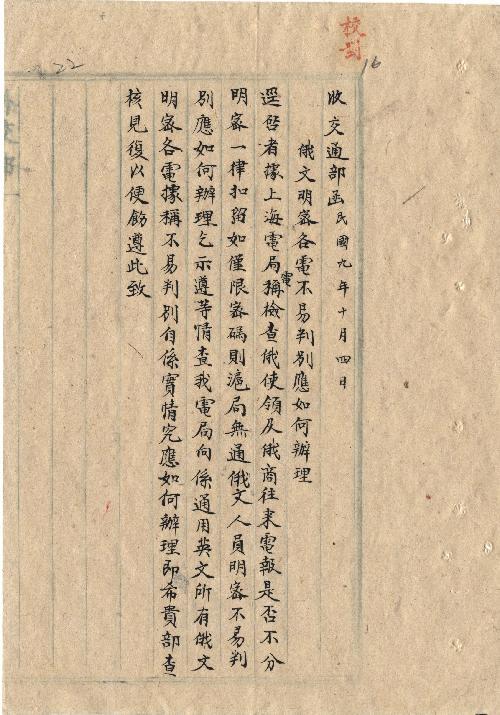 校對
16
22
收交通部函民國九年十月四日
俄文明密各電不易判別應如何辦理
逕啓者據上海電局稱檢查俄使領及俄商往來電報是否不分
電
明密一律扣留如僅限密碼則滬局無通俄文人員明密不易判
別應如何辦理乞示遵等情查我電局向係通用英文所有俄文
明密各電據稱不易判別自係實情究應如何辦理即希貴部查
核見復以便飭遵此致